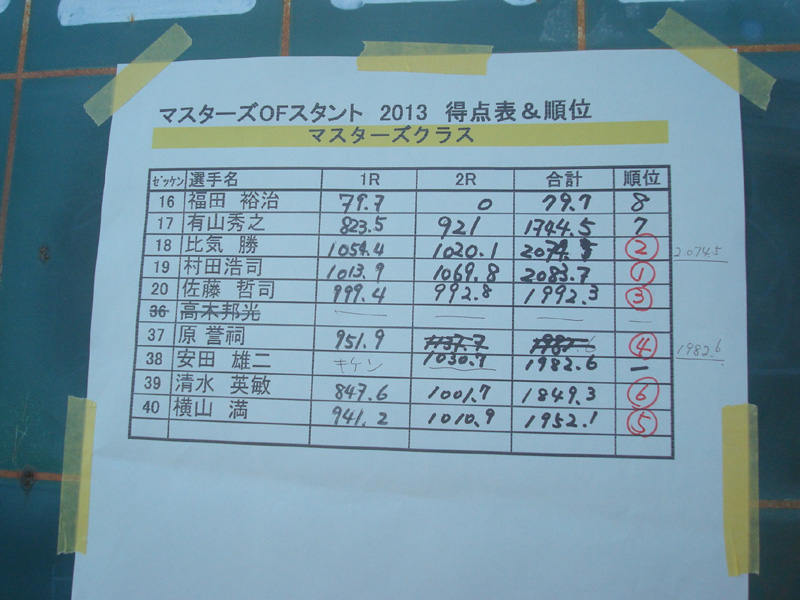 マスターズOFスタント 2013 得点表&順位
マスターズクラス
ゼッケン 選手名 1R 2R 合計 順位
16 福田 裕治 79.7 0 79.7 8
17 有山秀之 823.5 921 1744.5 7
18 比気 勝 1054.4 1020.1 2074.5 ② 2074.5
19 村田浩司 1013.9 1069.8 2083.7 ①
20 佐藤 哲司 999.4 992.8 1992.3 ③
36 高木邦光 — — — —
37 原 誉祠 951.9 1030.7 1982.6 ④ 1982.6
38 安田 雄二 キケン — — —
39 清水 英敏 847.6 1001.7 1849.3 ⑥
40 横山 満 941.2 1010.9 1952.1 ⑤